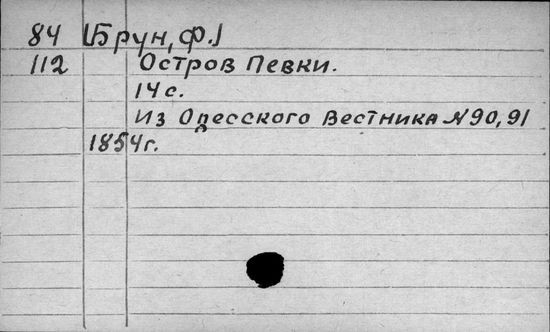 84 [Брун, Ф.]
112 Остров Певки.
14 с.
Из Одесского Вестника № 90, 91
1854 г.